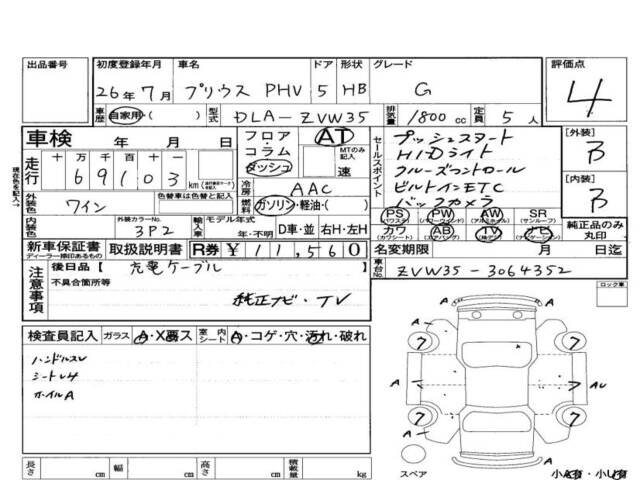 出品番号 初度登録年月 車名 ドア 形状 グレード 評価点
26年7月 プリウス PHV 5 HB G 4
車歴 自家用( ) 型式 DLA-ZVW35 排気量 1800 cc 定員 5 人
車検 年 月 日 フロア・コラム ダッシュ AT MTのみ記入 速
走行 十 万 千 百 十 一
6 9 1 0 3 km
冷房 AAC
外装色 ワイン 色替車は色替と記入 燃料 ガソリン・軽油・( )
内装色 外装カラーNo. 3P2 輸入車 モデル年式 年・不明 D車・並 右H・左H
新車保証書 ディーラー捺印あるもの 取扱説明書 R券 ¥11,560
セールスポイント
プッシュスタート
HIDライト
クルーズコントロール
ビルトインETC
バックカメラ
PS (パワステ) PW (パワーウィンド) AW (アルミホイル) SR (サンルーフ)
カワ (カワシート) AB (エアバッグ) TV ナビ (ナビゲーション)
純正品のみ丸印
[外装] B
[内装] B
名変期限 月 日迄
車台No. ZVW35-3064352
現在色を記入→
注意事項
後日品【 充電ケーブル 】
不具合箇所等
純正ナビ・TV
検査員記入 ガラス A・X要ス 室内シート A・コゲ・穴・汚れ・破れ
ハンドルスレ
シート
ホイルA
ロック車
A
7 7
A A AU
7 7
A
スペア
小A有・小U有
長さ cm 幅 cm 高さ cm 積載量 kg